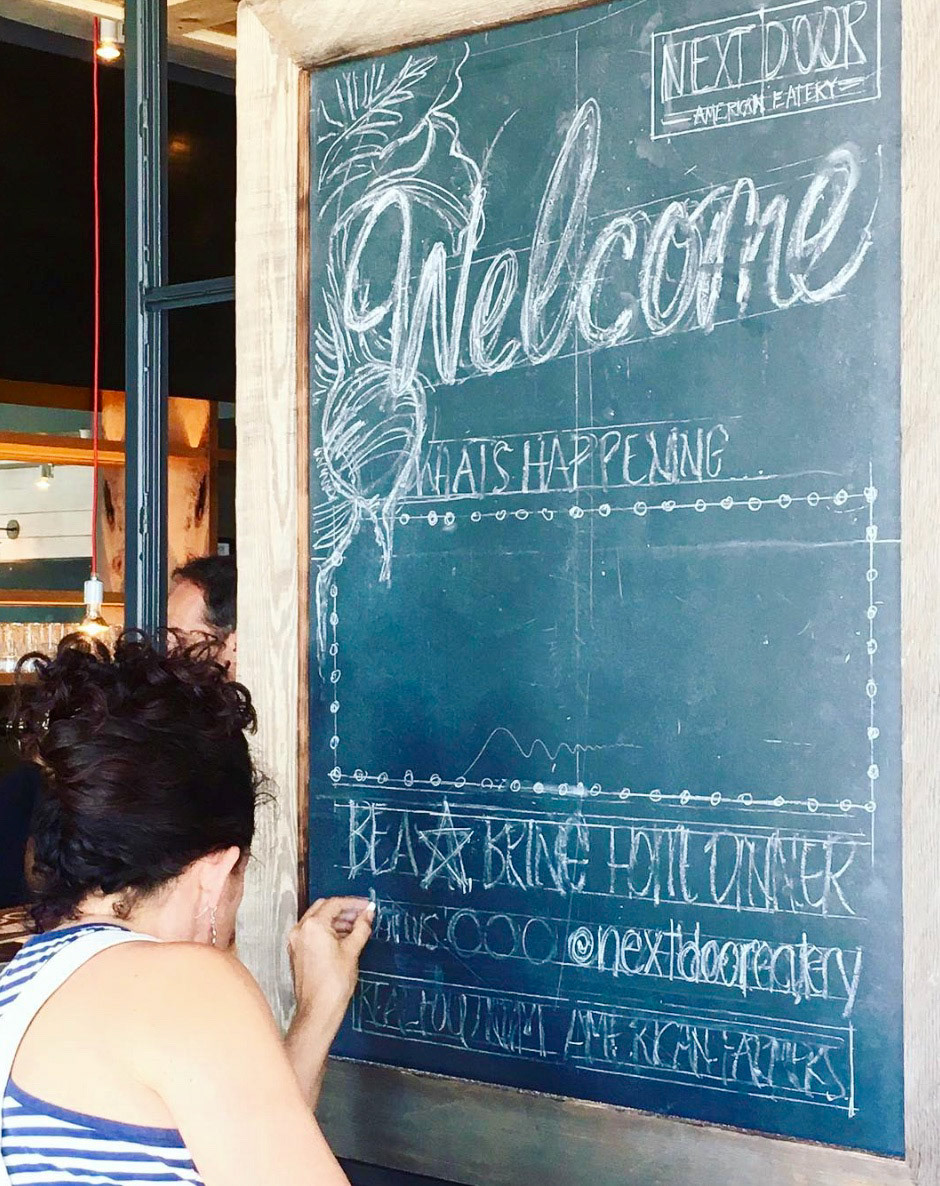 NEXT DOOR
AMERICAN EATERY
Welcome
WHATS HAPPENING
BE A BRING HOME DINNER
@nextdooreatery
REAL FOOD AMERICAN FARMERS